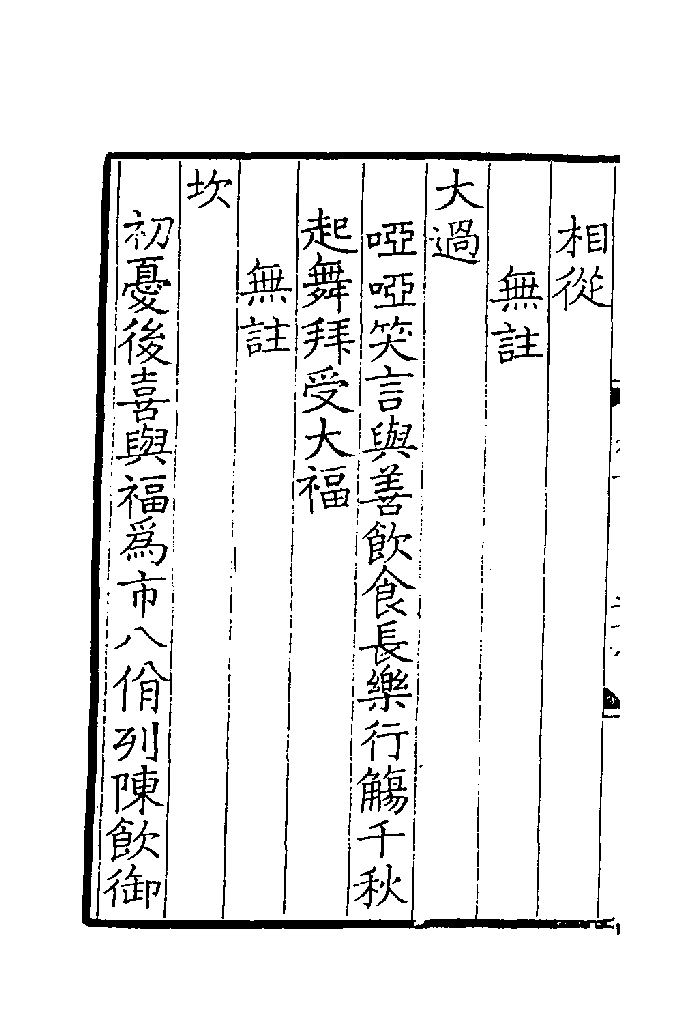 相從
無註
大過
啞啞笑言與善飲食長樂行觴千秋
起舞拜受大福
無註
坎
初憂後喜與福爲市八佾列陳飲御